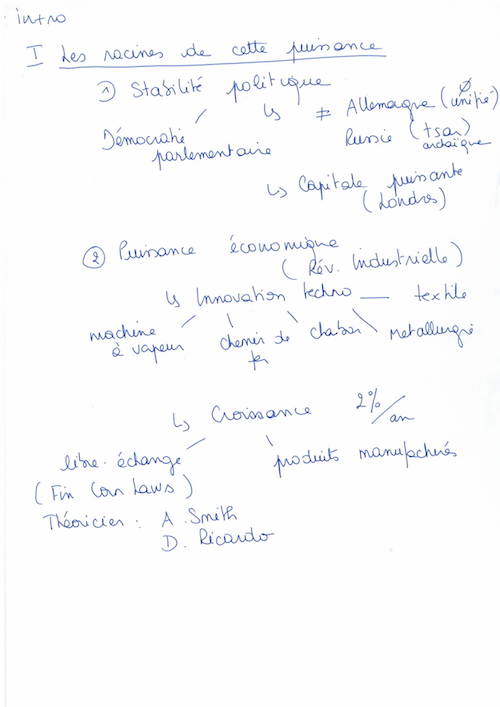 intro
I Les racines de cette puissance
1) Stabilité politique
↳ ≠ Allemagne (Ø unifié)
Démocratie parlementaire
Russie (tsar archaïque)
↳ Capitale puissante
(Londres)
2 Puissance économique
(Rév. Industrielle)
↳ Innovation techno — textile
machine à vapeur
chemin de fer
charbon
métallurgie
↳ Croissance 2%/an
libre-échange
produits manufacturés
(Fin Corn Laws)
Théoricien : A. Smith
D. Ricardo